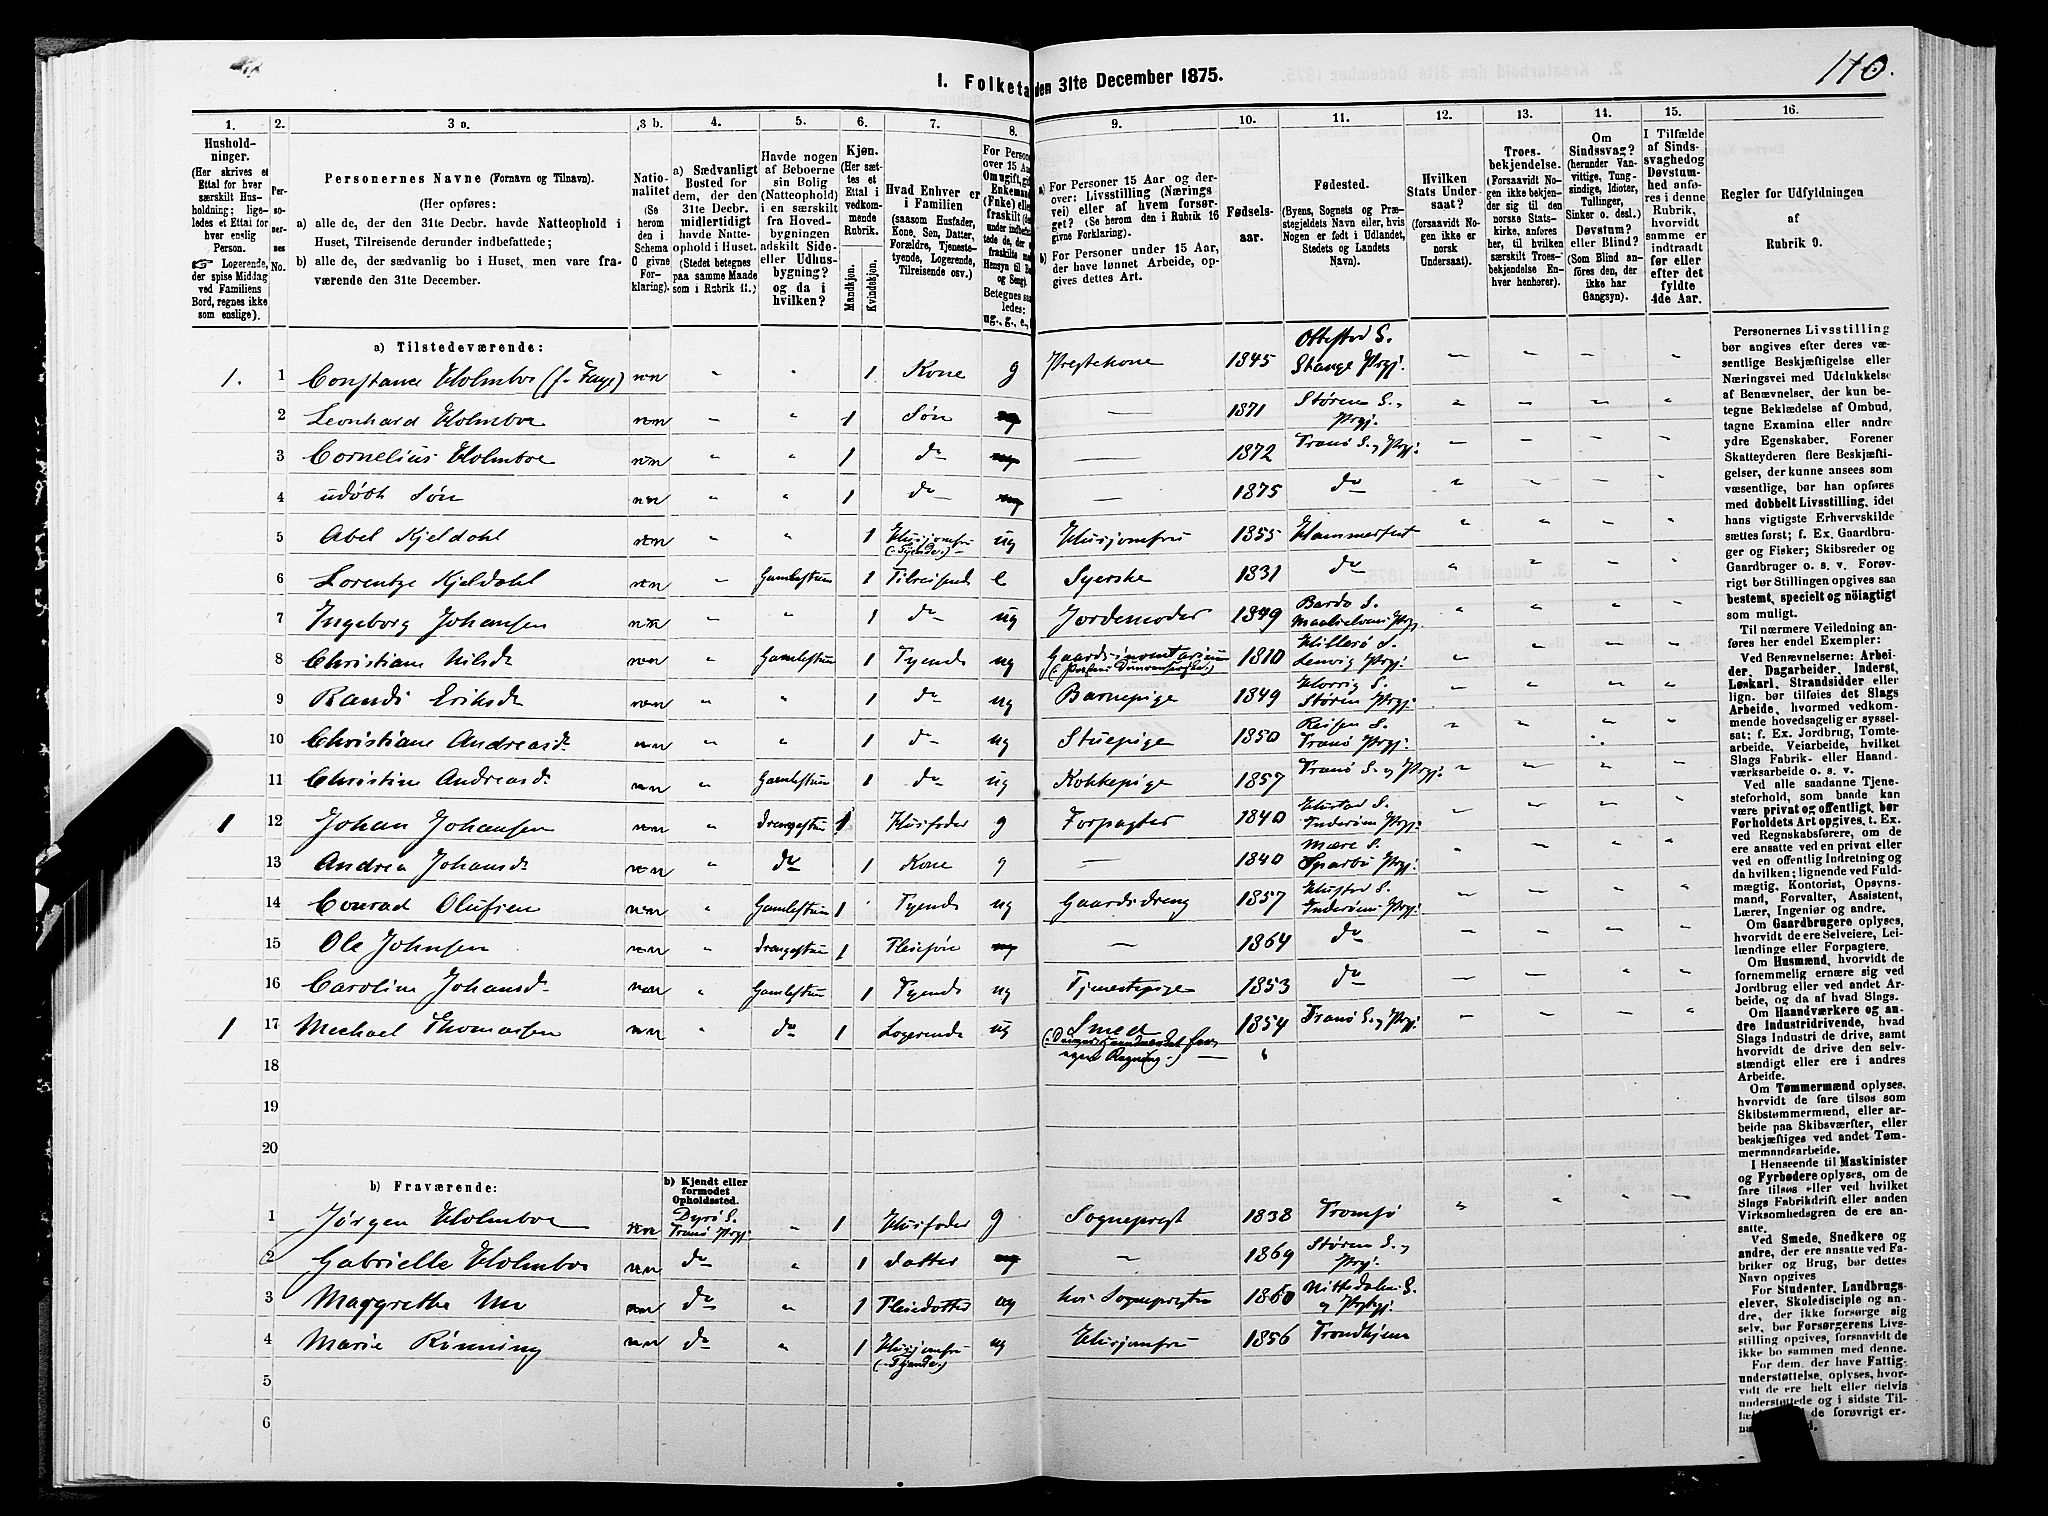 110.
I. Folketa den 31te December 1875.
1. 2. 3 a. 3 b. 4. 5. 6. 7. 8. 9. 10. 11. 12. 13. 14. 15. 16.
Hushold-
ninger.
(Her skrives et
Ettal for hver
særskilt Hus-
holdning; lige-
ledes et Ettal for
hver enslig
Person.
☞ Logerende,
der spise Middag
ved Familiens
Bord, regnes ikke
som enslige).
Per-
so-
ner-
nes
No.
Personernes Navne (Fornavn og Tilnavn).
(Her opføres:
a) alle de, der den 31te Decbr. havde Natteophold i
Huset, Tilreisende derunder indbefattede;
b) alle de, der sædvanlig bo i Huset, men vare fra-
værende den 31te December.
Natio-
nalitet
(Se
herom
den i
Schema
C givne
For-
klaring).
a) Sædvanligt
Bosted for
dem, der den
31te Decbr.
midlertidigt
havde Natte-
ophold i Huset.
(Stedet betegnes
paa samme Maade
som i Rubrik 11.)
Havde nogen
af Beboerne
sin Bolig
(Natteophold)
i en særskilt
fra Hoved-
bygningen
adskilt Side-
eller Udhus-
bygning?
og da i
hvilken?
Kjøn.
(Her sæt-
tes et
Ettal i
vedkom-
mende
Rubrik.
Mandkjøn.
Kvindekjøn.
Hvad Enhver er
i Familien
(saasom Husfader,
Kone, Søn, Datter,
Forældre, Tjeneste-
tyende, Logerende,
Tilreisende osv.)
For Person
over 15 Aa
Om ugift, gi
Enkemand
(Fnke) eller
fraskilt (der-
under indbe-
Betegnes saa
ledes:
ug., g., e.,
a) For Personer 15 Aar og der-
over: Livsstilling (Nærings
vei) eller af hvem forsør-
get? (Se herom den i Rubrik 16
givne Forklaring).
b) For Personer under 15 Aar,
der have lønnet Arbeide, op-
gives dettes Art.
Fødsels-
aar.
Fødested.
(Byens, Sognets og Præ-
stegjeldets Navn eller, hvis
Nogen er født i Udlandet,
Stedets og Landets
Navn).
Hvilken
Stats Under-
saat?
(forsaavidt No-
gen ikke er
norsk
Undersaat).
Troes-
bekjendelse.
(Forsaavidt No-
gen ikke bekjen-
der sig til den
norske Stats-
kirke, anføres
her, til hvilken
særskilt Troes-
bekjendelse En-
hver henhører).
Om
Sindssvag?
(herunder Van-
vittige, Tung-
sindige, Idioter,
Tullinger,
Sinker o. desl.)
Døvstum?
eller Blind?
(Som Blind an-
føres den, der
ikke har
Gangsyn).
I Tilfælde
af Sinds-
svaghed og
Døvstum-
hed anfø-
res i denne
Rubrik,
hvorvidt
samme er
indtraadt
før eller
efter det
fyldte
4de Aar.
Regler for Udfyldningen
af
Rubrik 9.
a) Tilstedeværende:
1. 1 Constance Holmboe (f. Faye) n.n " " 1 Kone g Prestekone 1845 Ottestad S. Stange Prgj.
2 Leonhard Holmboe n.n " " 1 Søn — 1871 Støren S., Prgj.
3 Cornelius Holmboe n.n " " 1 do — 1872 Tranø S. og Prgj:
4 udøbt Søn n.n " " 1 do — 1875 do
5 Abel Kjeldahl n.n " " 1 Husjomfru (: Tyende :) ug Husjomfru 1855 Hammerfest
6 Lorentze Kjeldahl n.n " Gamlestuen 1 Tilreisende e Syerske 1831 do
7 Ingeborg Johansen n.n " " 1 do ug Jordemoder 1849 Bardo S. Maalselvens Prgj.
8 Christiane Nilsd. n.n " Gamlestuen 1 Tyende ug Gaardsinventarium 1810 Hillesø S. Lenvig Prgj:
9 Randi Eriksd. n.n " " 1 do ug Barnepige 1849 Horrig S. Støren Prgj:
10 Christiane Andreasd. n.n " " 1 do ug Stuepige 1850 Reisen S. Tranø Prgj:
11 Christine Andreasd. n.n " Gamlestuen 1 do ug Kokkepige 1857 Tranø S. og Prgj:
1 12 Johan Johansen n.n " drengestuen 1 Husfader g Forpagter 1840 Hustad S. Inderøens Prgj:
13 Andrea Johansd. n.n " do 1 Kone g — 1840 Mære S. Sparbo Prgj:
14 Conrad Olufsen n.n " Gamlestuen 1 Tyende ug Gaardsdreng 1857 Hustad S. Inderøens Prgj:
15 Ole Johnsen n.n " drengestuen 1 Pleiesøn — 1864 do
16 Caroline Johansd. n.n " Gamlestuen 1 Tyende ug Tjenestepige 1853 do
1 17 Mechael Thomassen n.n " do 1 Logerende ug Smed 1854 Tranø S. og Prgj:
egne Regning :)
18
19
20
b) Fraværende:
b) Kjendt eller
formodet
Opholdssted.
1 Jørgen Holmboe n.n Dyrø S. Tranø Prgj: " 1 Husfader g Sogneprest 1838 Tromsø
2 Gabrielle Holmboe n.n do " 1 datter " 1869 Støren S. og Prgj:
3 Maggrethe n.n do " 1 Pleiedatter ug hos Sognepresten 1860 Nittedalen S. og Prgj:
4 Marie Rønning n.n do " 1 Husjomfru (: Tyende :) ug Husjomfru 1856 Trondhjem
5
6
Personernes Livsstilling
bør angives efter deres væ-
sentlige Beskjæftigelse eller
Næringsvei med Udelukkelse
af Benævnelser, der kun be-
tegne Beklædelse af Ombud,
tagne Examina eller andre
ydre Egenskaber. Forener
Skatteyderen flere Beskjæfti-
gelser, der kunne ansees som
væsentlige, bør han opføres
med dobbelt Livsstilling, idet
hans vigtigste Erhvervskilde
sættes først; f. Ex. Gaardbru-
ger og Fisker; Skibsreder og
Gaardbruger o. s. v. Forøv-
rigt bør Stillingen opgives saa
bestemt, specielt og nöiagtigt
som muligt.
Til nærmere Veiledning an-
føres her endel Exempler:
Ved Benævnelserne: Arbei-
der, Dagarbeider, Inderst,
Løskarl, Strandsidder eller
lign. bør tilføies det Slags
Arbeide, hvormed vedkom-
mende hovedsagelig er syssel-
sat; f. Ex. Jordbrug, Tomte-
arbeide, Veiarbeide, hvilket
Slags Fabrik- eller Haand-
værksarbeide o. s. v.
Ved alle saadanne Tjene-
steforhold, som baade kan
være privat og offentligt, bør
Forholdets Art opgives, t. Ex.
ved Regnskabsførere, om de
ere ansatte ved en privat eller
ved en offentlig Indretning og
da hvilken; lignende ved Fuld-
mægtig, Kontorist, Opsyns-
mand, Forvalter, Assistent,
Lærer, Ingeniør og andre.
Om Gaardbrugere oplyses,
hvorvidt de ere Selveiere, Lei-
lændinge eller Forpagtere.
Om Husmænd, hvorvidt de
fornemmelig ernære sig ved
Jordbrug eller ved andet Ar-
beide, og da af hvad Slags.
Om Haandværkere og an-
dre Industridrivende, hvad
Slags Industri de drive, samt
hvorvidt de drive den selv-
stændigt eller ere i andres
Arbeide.
Om Tømmermænd oplyses,
hvorvidt de fare tilsøs som
Skibstømmermænd, eller ar-
beide paa Skibsværfter, eller
beskjæftiges ved andet Tøm-
mermandsarbeide.
I Henseende til Maskinister
og Fyrbødere oplyses, om de
fare tilsøs eller ved hvilket
Slags Fabrikdrift eller anden
Virksomhedsgren de ere an-
satte.
Ved Smede, Snedkere og
andre, der ere ansatte ved Fa-
briker og Brug, bør dettes
Navn opgives
For Studenter, Landbrugs-
elever, Skoledisciple og an-
dre, der ikke forsørge sig
selv, bør Forsørgerens Livs-
stilling opgives, forsaavidt de
ikke bo sammen med denne.
For dem, der have Fattig-
understøttelse, oplyses, hvor-
vidt de ere helt eller delvis
understøttede og i sidste Til-
de forøvrigt er-